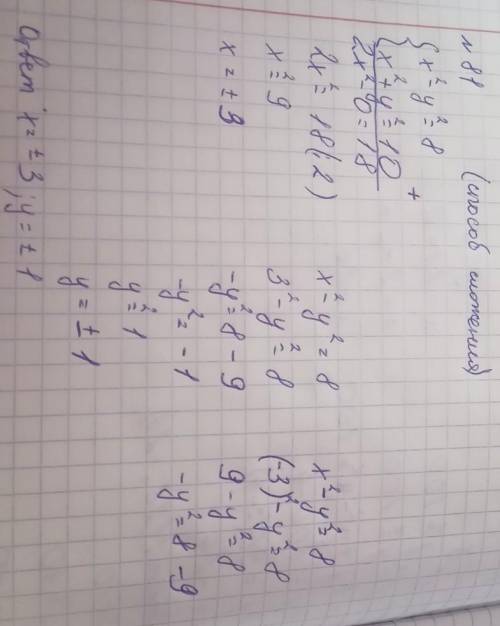 №81 (способ сложения)
{x² - y² = 8
{x² + y² = 10 +
2x² - 0 = 18
2x² = 18 (:2)
x² = 9
x = ± 3
x² - y² = 8
3² - y² = 8
-y² = 8 - 9
-y² = -1
y² = 1
y = ± 1
x² - y² = 8
(-3)² - y² = 8
9 - y² = 8
-y² = 8 - 9
Ответ: x = ± 3; y = ± 1